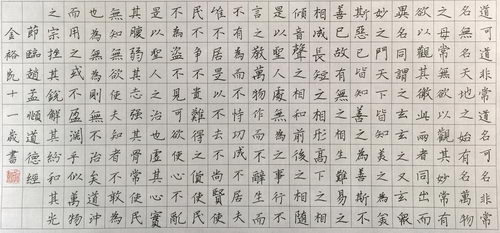 道可道非常道名可名非常
名無名天地之始有名萬物
之母常無欲以觀其妙常有
欲以觀其徼此兩者同出而
異名同謂之玄玄之又玄衆
妙之門天下皆知美之為美
斯惡已皆知善之為善斯不
善已故有無之相生難易之
相成長短之相形高下之相
傾音聲之相和前後之相隨
是以聖人處無為之事行不
言之教萬物作而不辭生而
不有為而不恃功成不居夫
唯不居是以不去不尚賢使
民不爭不貴難得之貨使民
不為盜不見可欲使心不亂
是以聖人之治也虛其心實
其腹弱其志強其骨常使民
無知無欲使夫知者不敢為
也為無為則無不治矣道沖
而用之或不盈淵乎似萬物
之宗挫其銳解其紛和其光
節臨趙孟頫道德經
金裕十一歲書